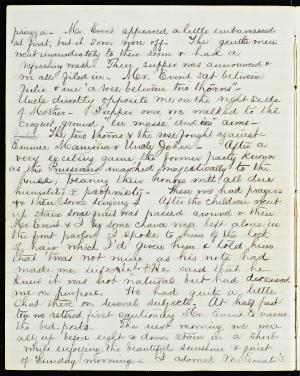 piazza - Mr. Evout appeared a little embarrassed
at first, but it soon wore off. The gentlemen
went immediately to their room & had a
refreshing wash. Then supper was announced &
we all filed in - Mr. Evout sat between
Julie & me "a rose between two thorns" -
Uncle directly opposite me on the right side
of Mother - Supper over, we walked to the
Croquet ground "en masse" and in arms -
The two thorns & the rose fought against
Emma, & Uncle John - After a
very exciting game, the former party known
as the marched majestically to the
house - bearing their honors with all due
humility & propriety - Then we had prayers
& then some singing - After the children went
up stairs some was passed around & then
Mr. Evout & I by some chance were left alone in
the front parlor. I spoke to him of the lock
of hair which I'd given him, & told him
that 'twas not mine as his note had
made me & he said that he
knew it was not natural but had
me on purpose. We had quite a little
chat then on several subjects. At half past
ten we retired first cautioning Mr. Evout to name
the bed posts. The next morning we were
all up before eight & down stairs in a short
while enjoying the beautiful sunshine & quiet
of Sunday morning. I adorned Mr. Evout's